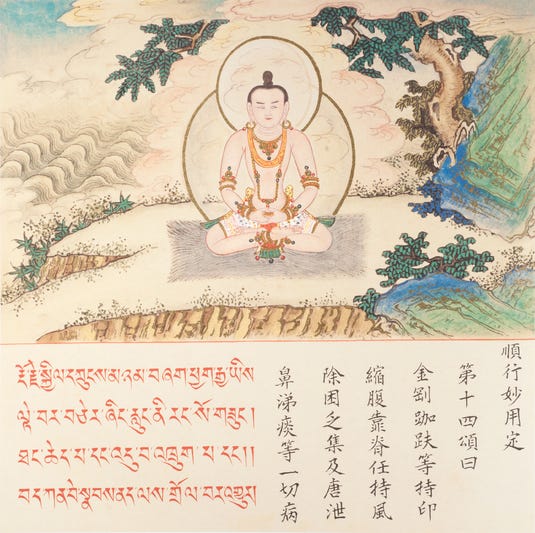 རྡོ་རྗེ་སྐྱིལ་དཀྲུངས་མཉམ་བཞག་ཕྱག་རྒྱ་ཡིས
ལྟེ་བར་བཅེར་ཞིང་རླུང་ནི་རང་སོ་གཟུང།
ཐང་ཆེད་པ་དང་འདུ་བ་འཁྲུག་པ་དང་།།
བད་ཀན་བེ་སྣབས་ནད་ལས་གྲོལ་བར་འགྱུར།
順行妙用定
第十四頌曰
金剛跏趺等持印
縮腹靠脊任持風
除困乏集及唐泄
鼻涕痰等一切病